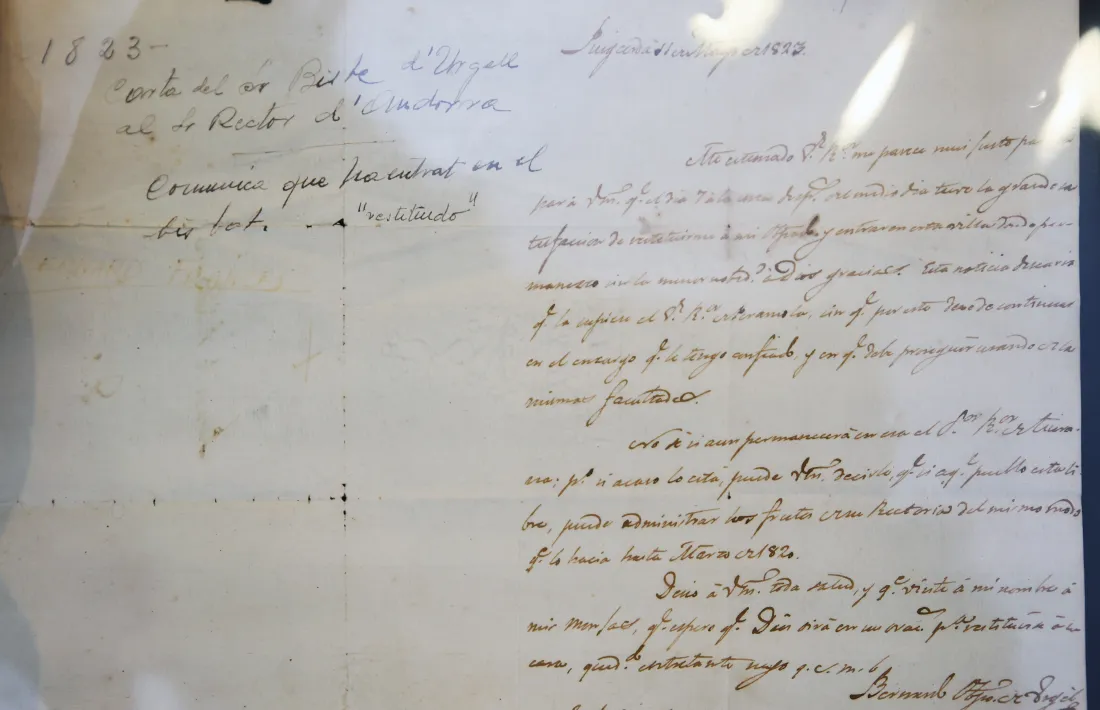 - 1823 -
Carta del Sr Bisbe d'Urgell
al Sr Rector d'Andorra
Comunica que ha entrat en el
bisbat. "restituido"
Puigcerdá 11 de Mayo de 1823.
Mi estimado S.r R.or me parece muy justo
para Vm. q.e el dia 7 á las desp.s del medio dia tuve la grande sa
tisfaccion de restituirme á mi Obpdo. y entrar en esta villa donde per-
manezco sin la menor noved.d á Dios gracias. Esta noticia desearia
q.e la supiese el S.r R.or de Peramola, sin q.e por esto dexe de continuar
en el encargo q.e le tengo confiado, y en q.e debe proseguir usando de las
mismas facultades.
No sé si aun permanecerá en esa el S.or R.or de
; p.o si acaso lo está, puede Vm. decirlo, q.e si aq.l pueblo esta li-
bre, puede administrar los frutos de su Rectoria del mismo modo
q.e lo hacia hasta Marzo de 1820.
Deseo á Vm. toda salud, y q.e visite á mi nombre á
mis Monjas, q.e espero q.e Dios oirá en su orac.n p.a restituirse á su
casa, qued.o entretanto suyo q. s. m. b.
Bernardo Obpo. de Urgél